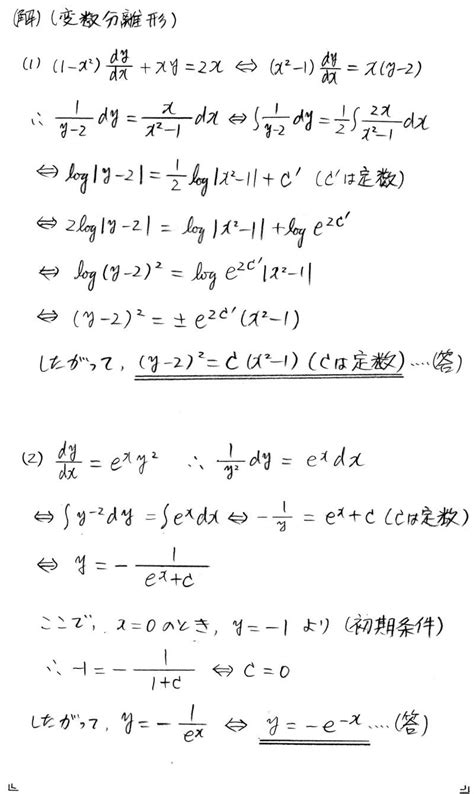 (解) (変数分離形)
(1) (1-x²) dy/dx + xy = 2x ⇔ (x²-1) dy/dx = x(y-2)
∴ 1/(y-2) dy = x/(x²-1) dx ⇔ ∫ 1/(y-2) dy = 1/2 ∫ 2x/(x²-1) dx
⇔ log|y-2| = 1/2 log|x²-1| + C′ (C′は定数)
⇔ 2log|y-2| = log|x²-1| + log e^{2C′}
⇔ log(y-2)² = log e^{2C′}|x²-1|
⇔ (y-2)² = ± e^{2C′}(x²-1)
したがって, (y-2)² = C(x²-1) (Cは定数) ‥‥(答)
(2) dy/dx = e^x y² ∴ 1/y² dy = e^x dx
⇔ ∫ y⁻² dy = ∫ e^x dx ⇔ -1/y = e^x + C (Cは定数)
⇔ y = - 1/(e^x + C)
ここで, x=0 のとき, y=-1 より (初期条件)
∴ -1 = - 1/(1+C) ⇔ C = 0
したがって, y = - 1/e^x ⇔ y = -e^{-x} ‥‥(答)